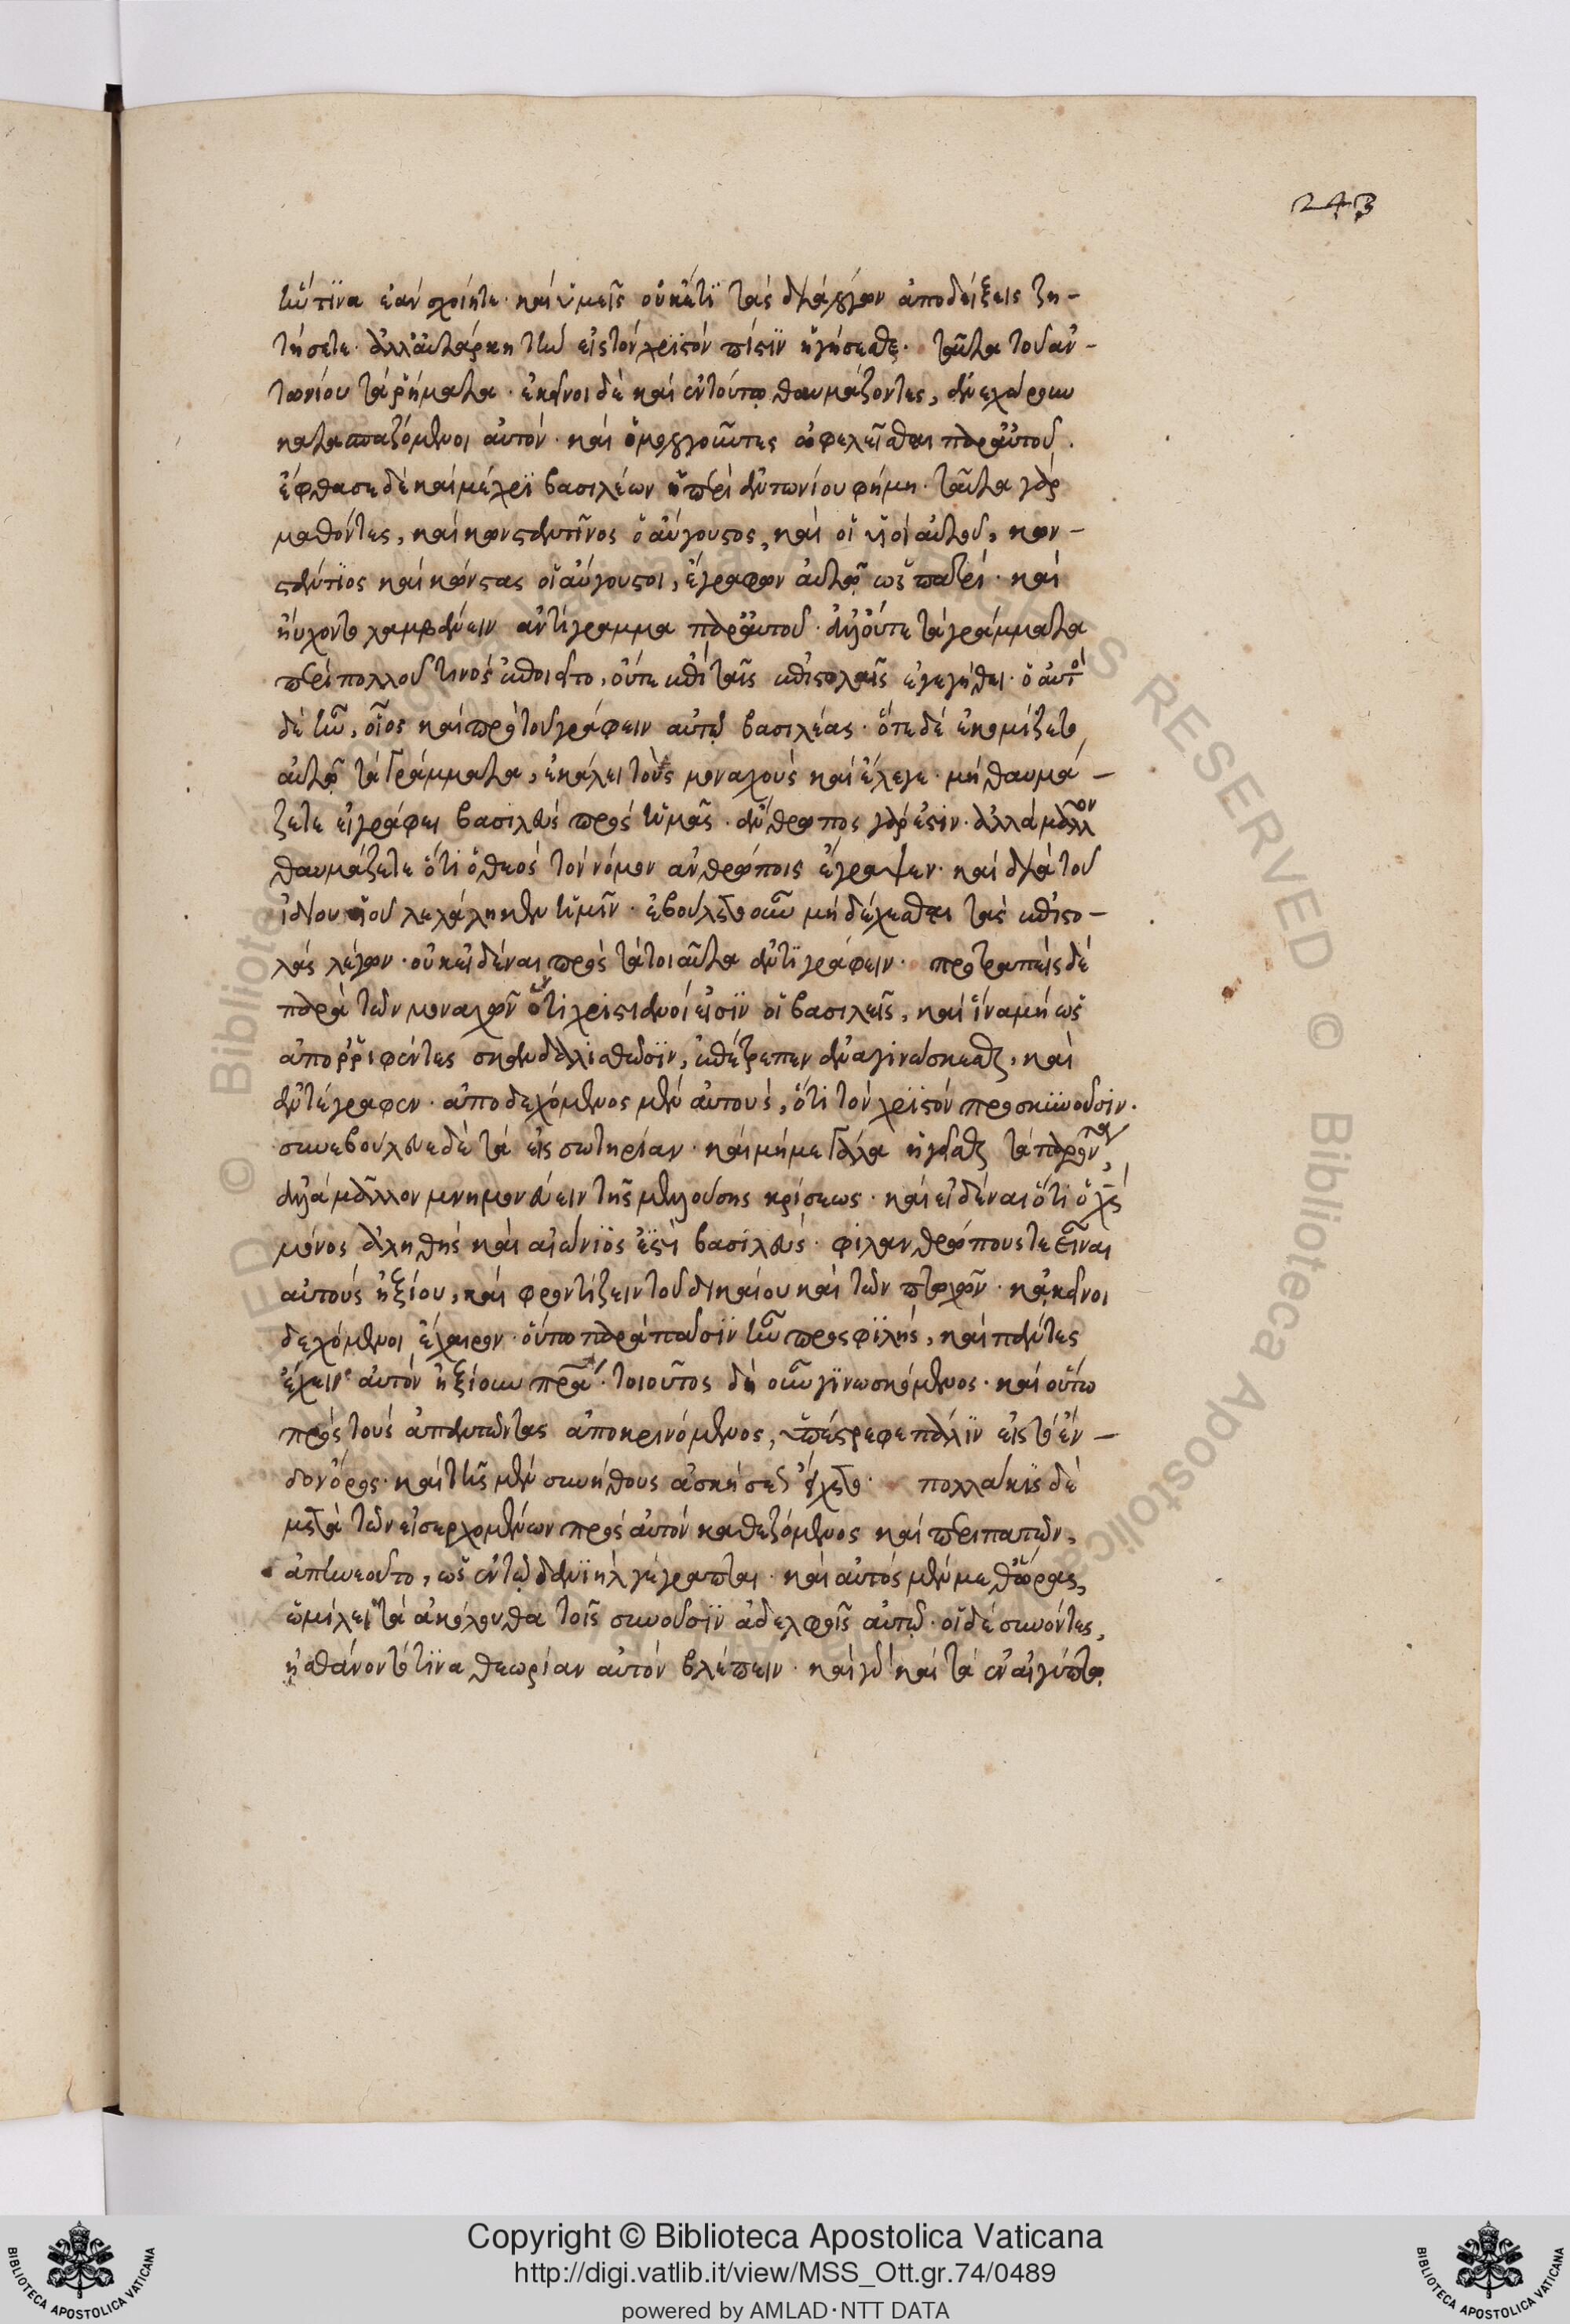 243
ἥντινα ἐὰν σχοίητε· καὶ ὑμεῖς οὐκέτι τὰς διὰ λόγων ἀποδείξεις ζη-
τήσετε· ἀλλ' αὐτάρκη τὴν εἰς τὸν χριστὸν πίστιν ἡγήσεσθε· ταῦτα τοῦ ἀν-
τωνίου τὰ ῥήματα· ἐκεῖνοι δὲ καὶ ἐν τούτῳ θαυμάζοντες, ἀνεχώρουν
κατασπαζόμενοι αὐτόν· καὶ ὁμολογοῦντες ὠφελεῖσθαι παρ' αὐτοῦ.
ἔφθασε δὲ καὶ μέχρι βασιλέων ἡ περὶ ἀντωνίου φήμη· ταῦτα γὰρ
μαθόντες, καὶ κωνσταντῖνος ὁ αὔγουστος, καὶ οἱ υἱοὶ αὐτοῦ, κων-
στάντιος καὶ κώνστας οἱ αὔγουστοι, ἔγραφον αὐτῷ ὡς πατρί· καὶ
ηὔχοντο λαμβάνειν ἀντίγραμμα παρ' αὐτοῦ· ἀλλ' οὔτε τὰ γράμματα
περὶ πολλοῦ τινὸς ἐποιεῖτο, οὔτε ἐπὶ ταῖς ἐπιστολαῖς ἐγεγήθει· ὁ αὐτὸ
δὲ ἦν, οἷος καὶ πρὸ τοῦ γράφειν αὐτῷ βασιλέας· ὅτε δὲ ἐκομίζετο
αὐτῷ τὰ γράμματα, ἐκάλει τοὺς μοναχοὺς καὶ ἔλεγε· μὴ θαυμά-
ζετε εἰ γράφει βασιλεὺς πρὸς ὑμᾶς· ἄνθρωπος γάρ ἐστιν· ἀλλὰ μᾶλλον
θαυμάζετε ὅτι ὁ θεὸς τὸν νόμον ἀνθρώποις ἔγραψεν· καὶ διὰ τοῦ
ἰδίου υἱοῦ λελάληκεν ὑμῖν· ἐβούλετο οὖν μὴ δέχεσθαι τὰς ἐπιστο-
λὰς λέγων· οὐκ εἰδέναι πρὸς τὰ τοιαῦτα ἀντιγράφειν· προτραπεὶς δὲ
παρὰ τῶν μοναχῶν ὅτι χριστιανοί εἰσιν οἱ βασιλεῖς, καὶ ἵνα μὴ ὡς
ἀπορριφέντες σκανδαλισθῶσιν, ἐπέτρεπεν ἀναγινώσκεσθαι, καὶ
ἀντέγραφεν· ἀποδεχόμενος μὲν αὐτούς, ὅτι τὸν χριστὸν προσκυνοῦσιν·
συνεβούλευε δὲ τὰ εἰς σωτηρίαν· καὶ μὴ μεγάλα ἡγεῖσθαι τὰ παρόντα,
ἀλλὰ μᾶλλον μνημονεύειν τῆς μελλούσης κρίσεως· καὶ εἰδέναι ὅτι ὁ χς
μόνος ἀληθὴς καὶ αἰώνιός ἐστι βασιλεύς· φιλανθρώπους τε εἶναι
αὐτοὺς ἠξίου, καὶ φροντίζειν τοῦ δικαίου καὶ τῶν πτωχῶν· κἀκεῖνοι
δεχόμενοι ἔχαιρον· οὕτω παρὰ πᾶσιν ἦν προσφιλής, καὶ πάντες
ἔχειν αὐτὸν ἠξίουν πρα· τοιοῦτος δὴ οὖν γινωσκόμενος· καὶ οὕτω
πρὸς τοὺς ἀπαντῶντας ἀποκρινόμενος, ὑπέστρεφε πάλιν εἰς τὸ ἔν-
δον ὄρος· καὶ τῆς μὲν συνήθους ἀσκήσεως εἴχετο· πολλάκις δὲ
μετὰ τῶν εἰσερχομένων πρὸς αὐτὸν καθεζόμενος καὶ περιπατῶν,
ἀπηνεοῦτο, ὡς ἐν τῷ δανιὴλ γέγραπται· καὶ αὐτὸς μὲν μεθ' ὥρας,
ὡμίλει τὰ ἀκόλουθα τοῖς συνοῦσιν ἀδελφοῖς αὐτῷ· οἱ δὲ συνόντες,
ᾐσθάνοντό τινα θεωρίαν αὐτὸν βλέπειν· καὶ γὰρ καὶ τὰ ἐν αἰγύπτῳ
Copyright © Biblioteca Apostolica Vaticana
http://digi.vatlib.it/view/MSS_Ott.gr.74/0489
powered by AMLAD·NTT DATA